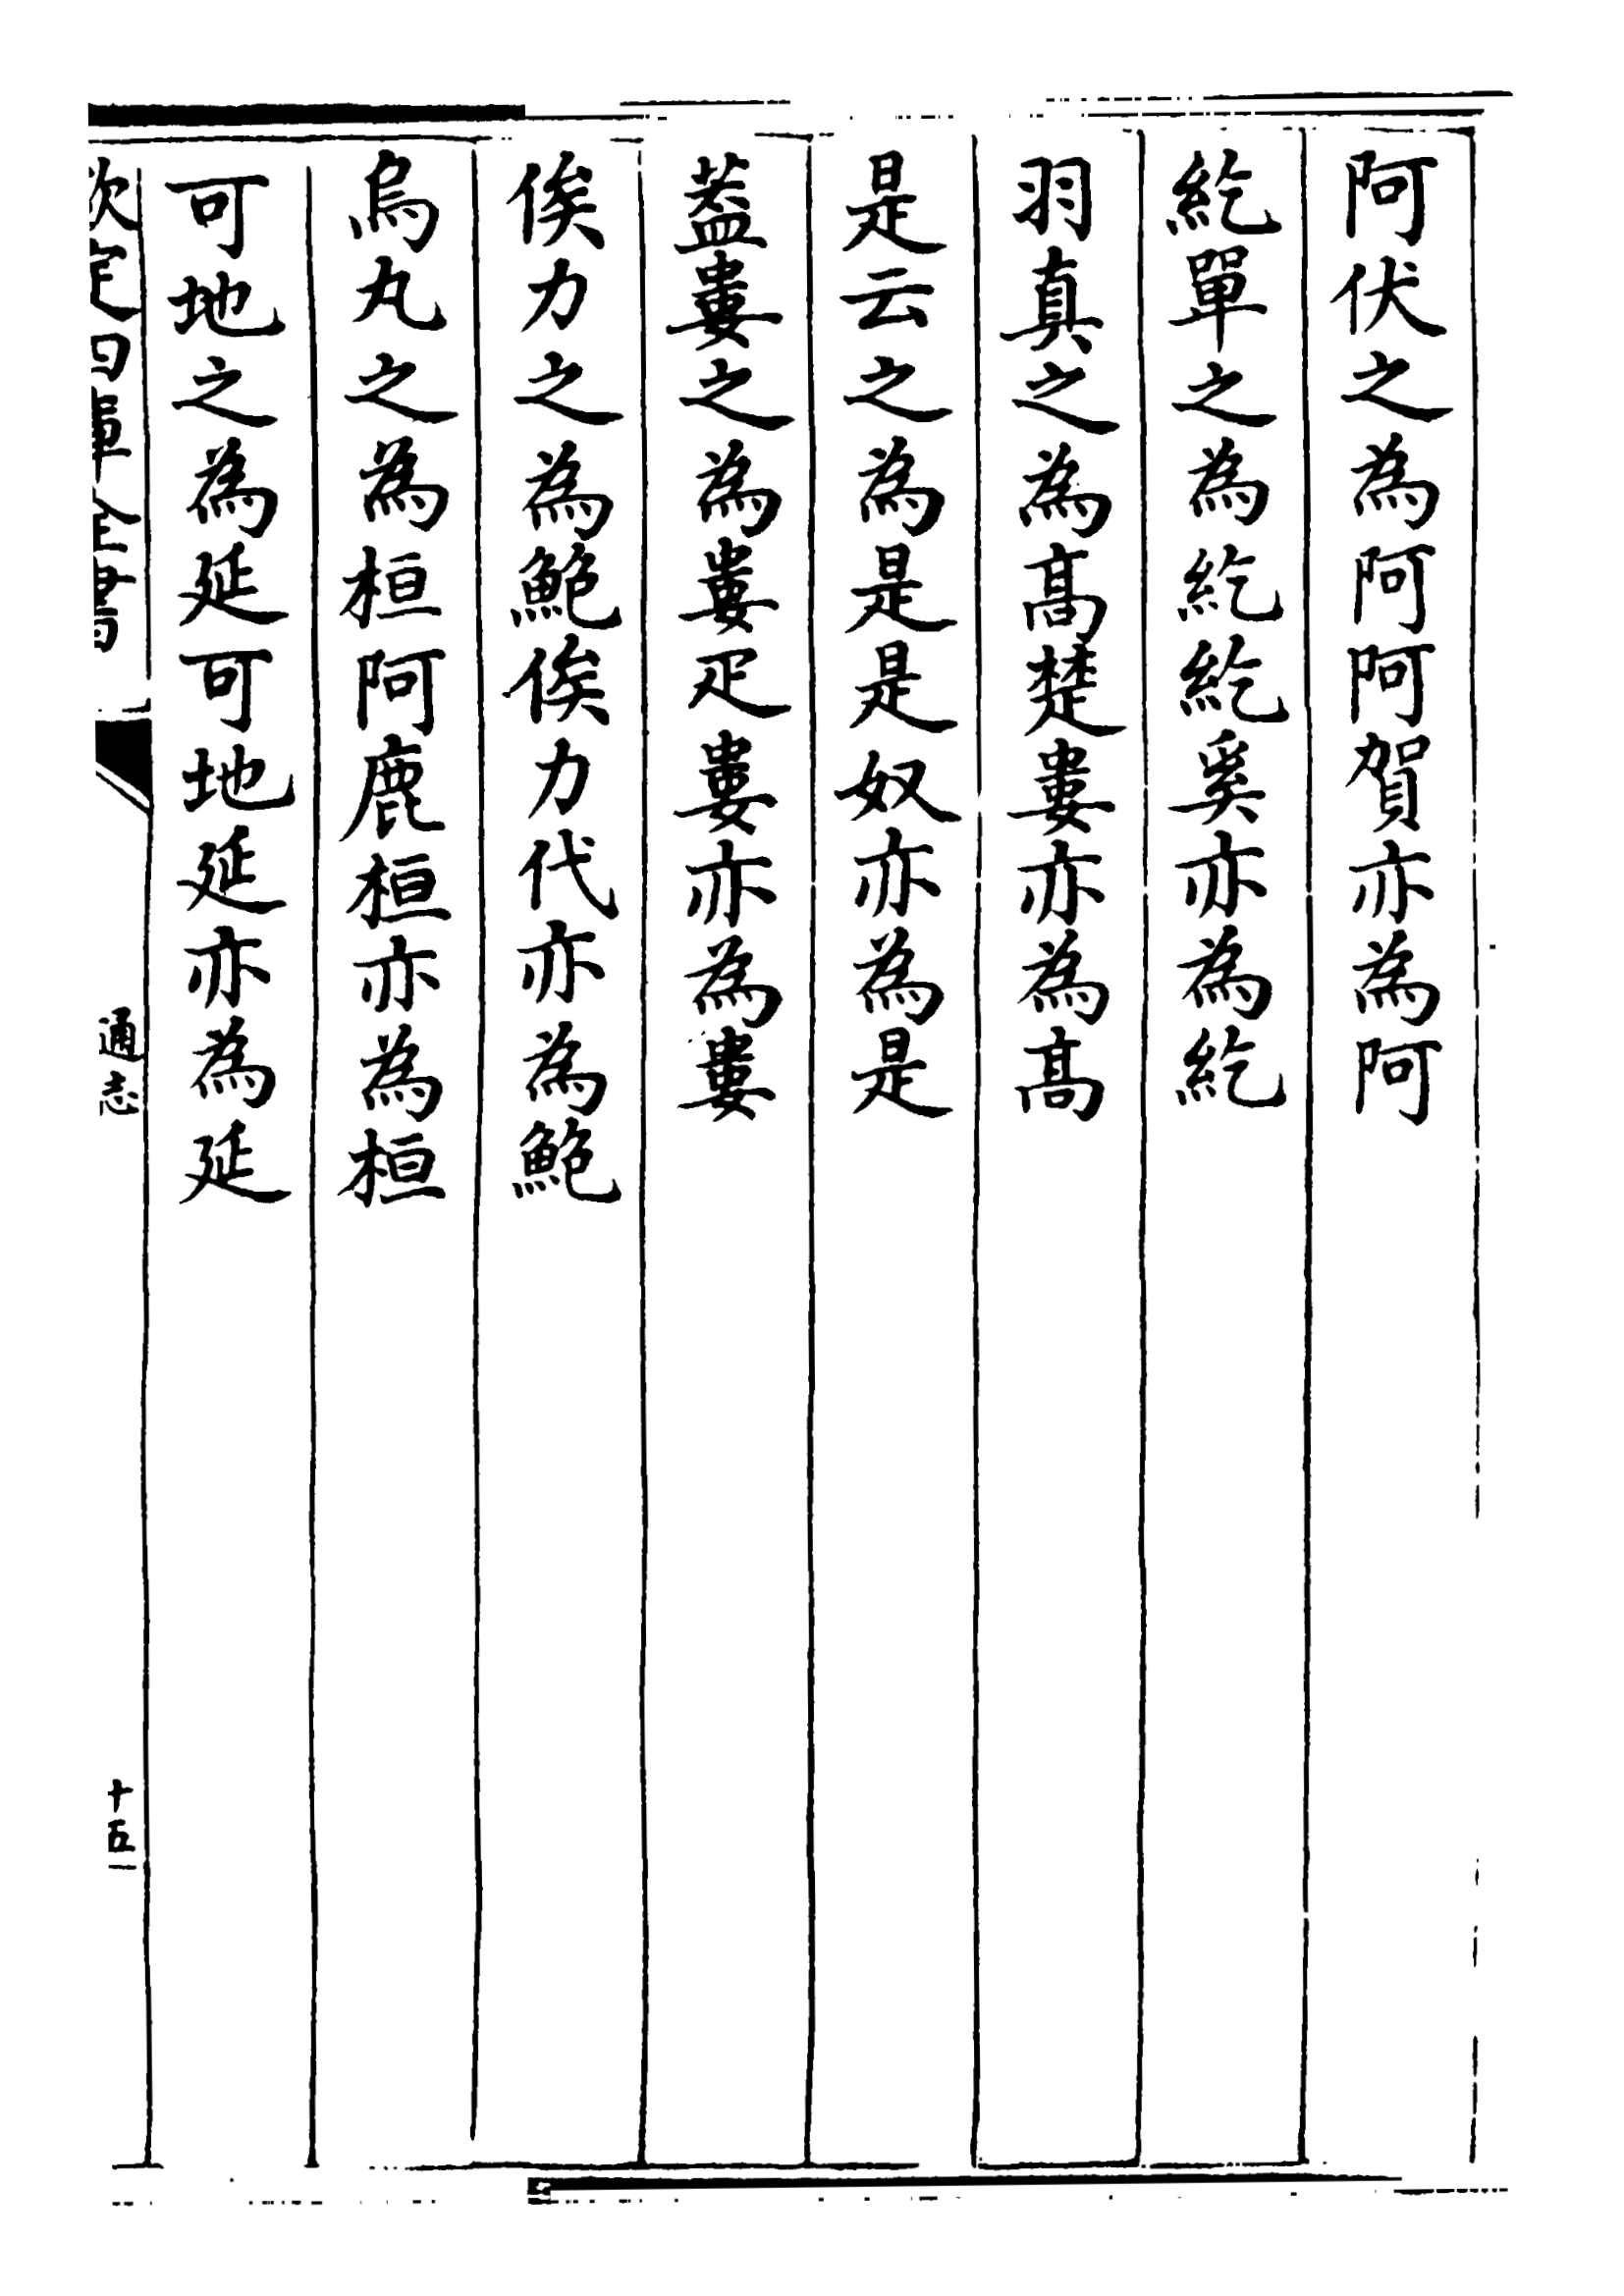 阿伏之為阿阿賀亦為阿
紇單之為紇紇奚亦為紇
羽真之為髙楚婁亦為髙
是云之為是是奴亦為是
葢婁之為婁疋婁亦為婁
俟力之為鮑俟力代亦為鮑
烏丸之為桓阿鹿桓亦為桓
可地之為延可地延亦為延
欽定四庫全書
通志
十五